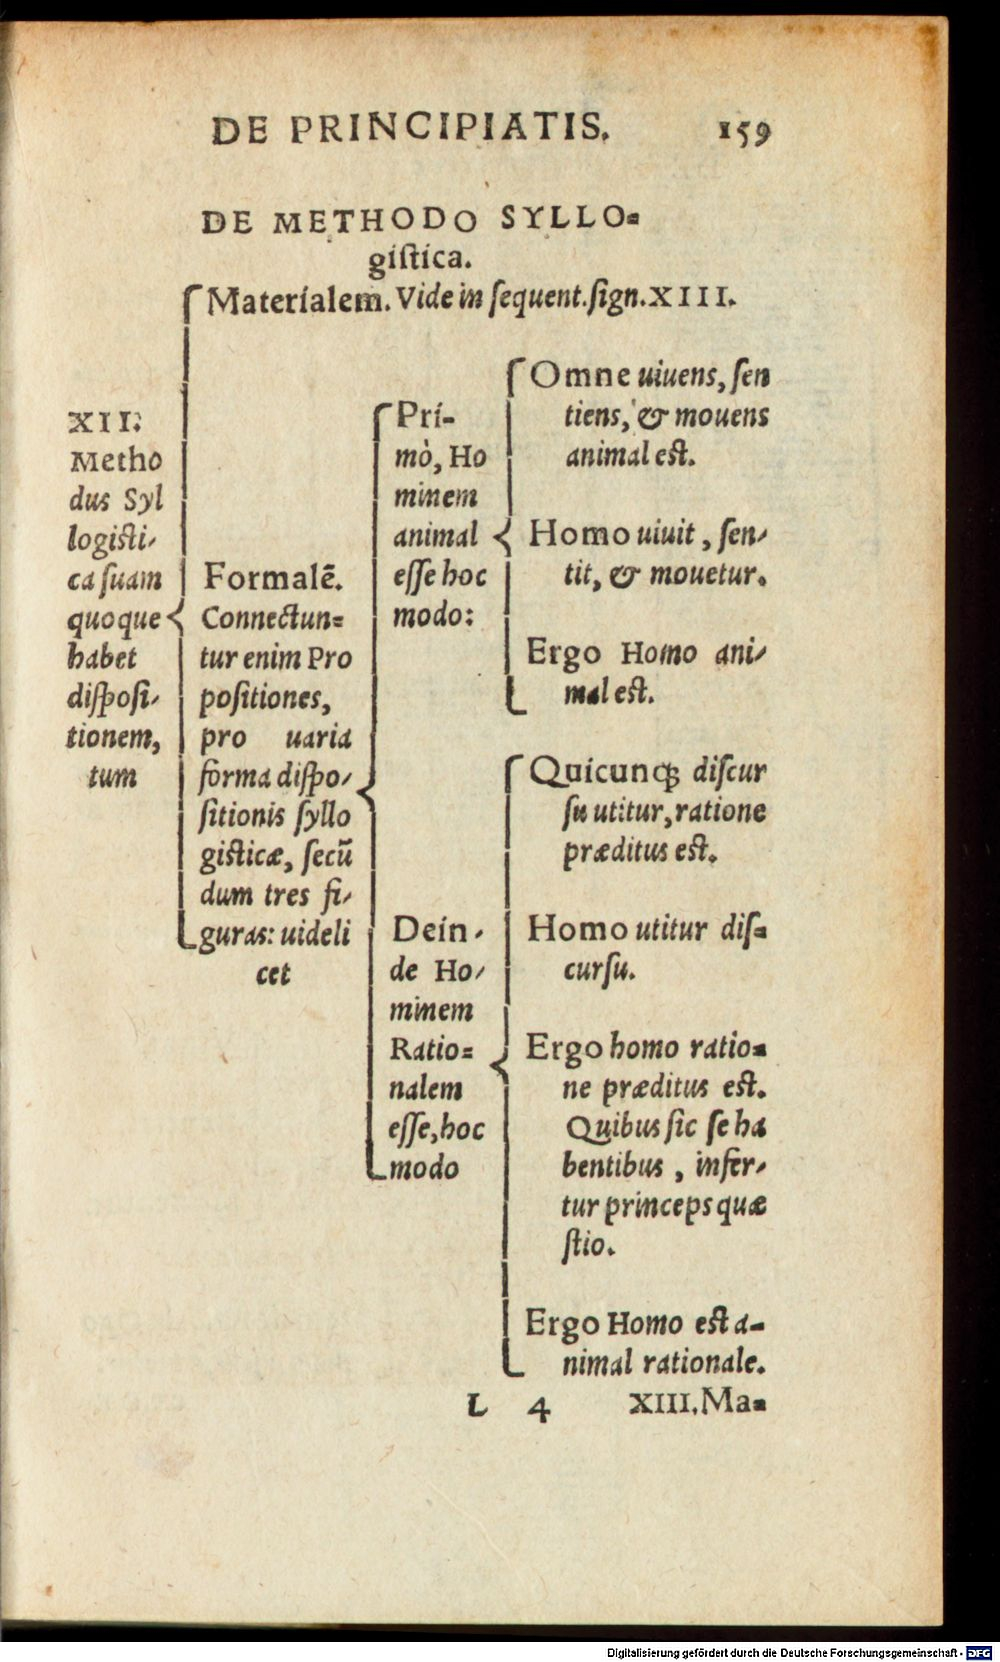 DE PRINCIPIATIS. 159
DE METHODO SYLLO=
giſtica.
Materialem. Vide in ſequent. ſign. XIII.
XII.
Metho
dus Syl
logiſti-
ca ſuam
quoque
habet
diſpoſi-
tionem,
tum
Formalē.
Connectun=
tur enim Pro
poſitiones,
pro uaria
forma diſpo-
ſitionis ſyllo
giſticæ, ſecū
dum tres fi-
guras: uideli
cet
Pri-
mò, Ho
minem
animal
eſſe hoc
modo:
Omne uiuens, ſen
tiens, & mouens
animal eſt.
Homo uiuit, ſen-
tit, & mouetur.
Ergo Homo ani-
mal eſt.
Dein-
de Ho-
minem
Ratio=
nalem
eſſe, hoc
modo
Quicunꝗ diſcur
ſu utitur, ratione
præditus eſt.
Homo utitur diſ=
curſu.
Ergo homo ratio=
ne præditus eſt.
Quibus ſic ſe ha
bentibus, infer-
tur princeps quæ
ſtio.
Ergo Homo eſt a-
nimal rationale.
L 4 XIII. Ma=
Digitalisierung gefördert durch die Deutsche Forschungsgemeinschaft - DFG